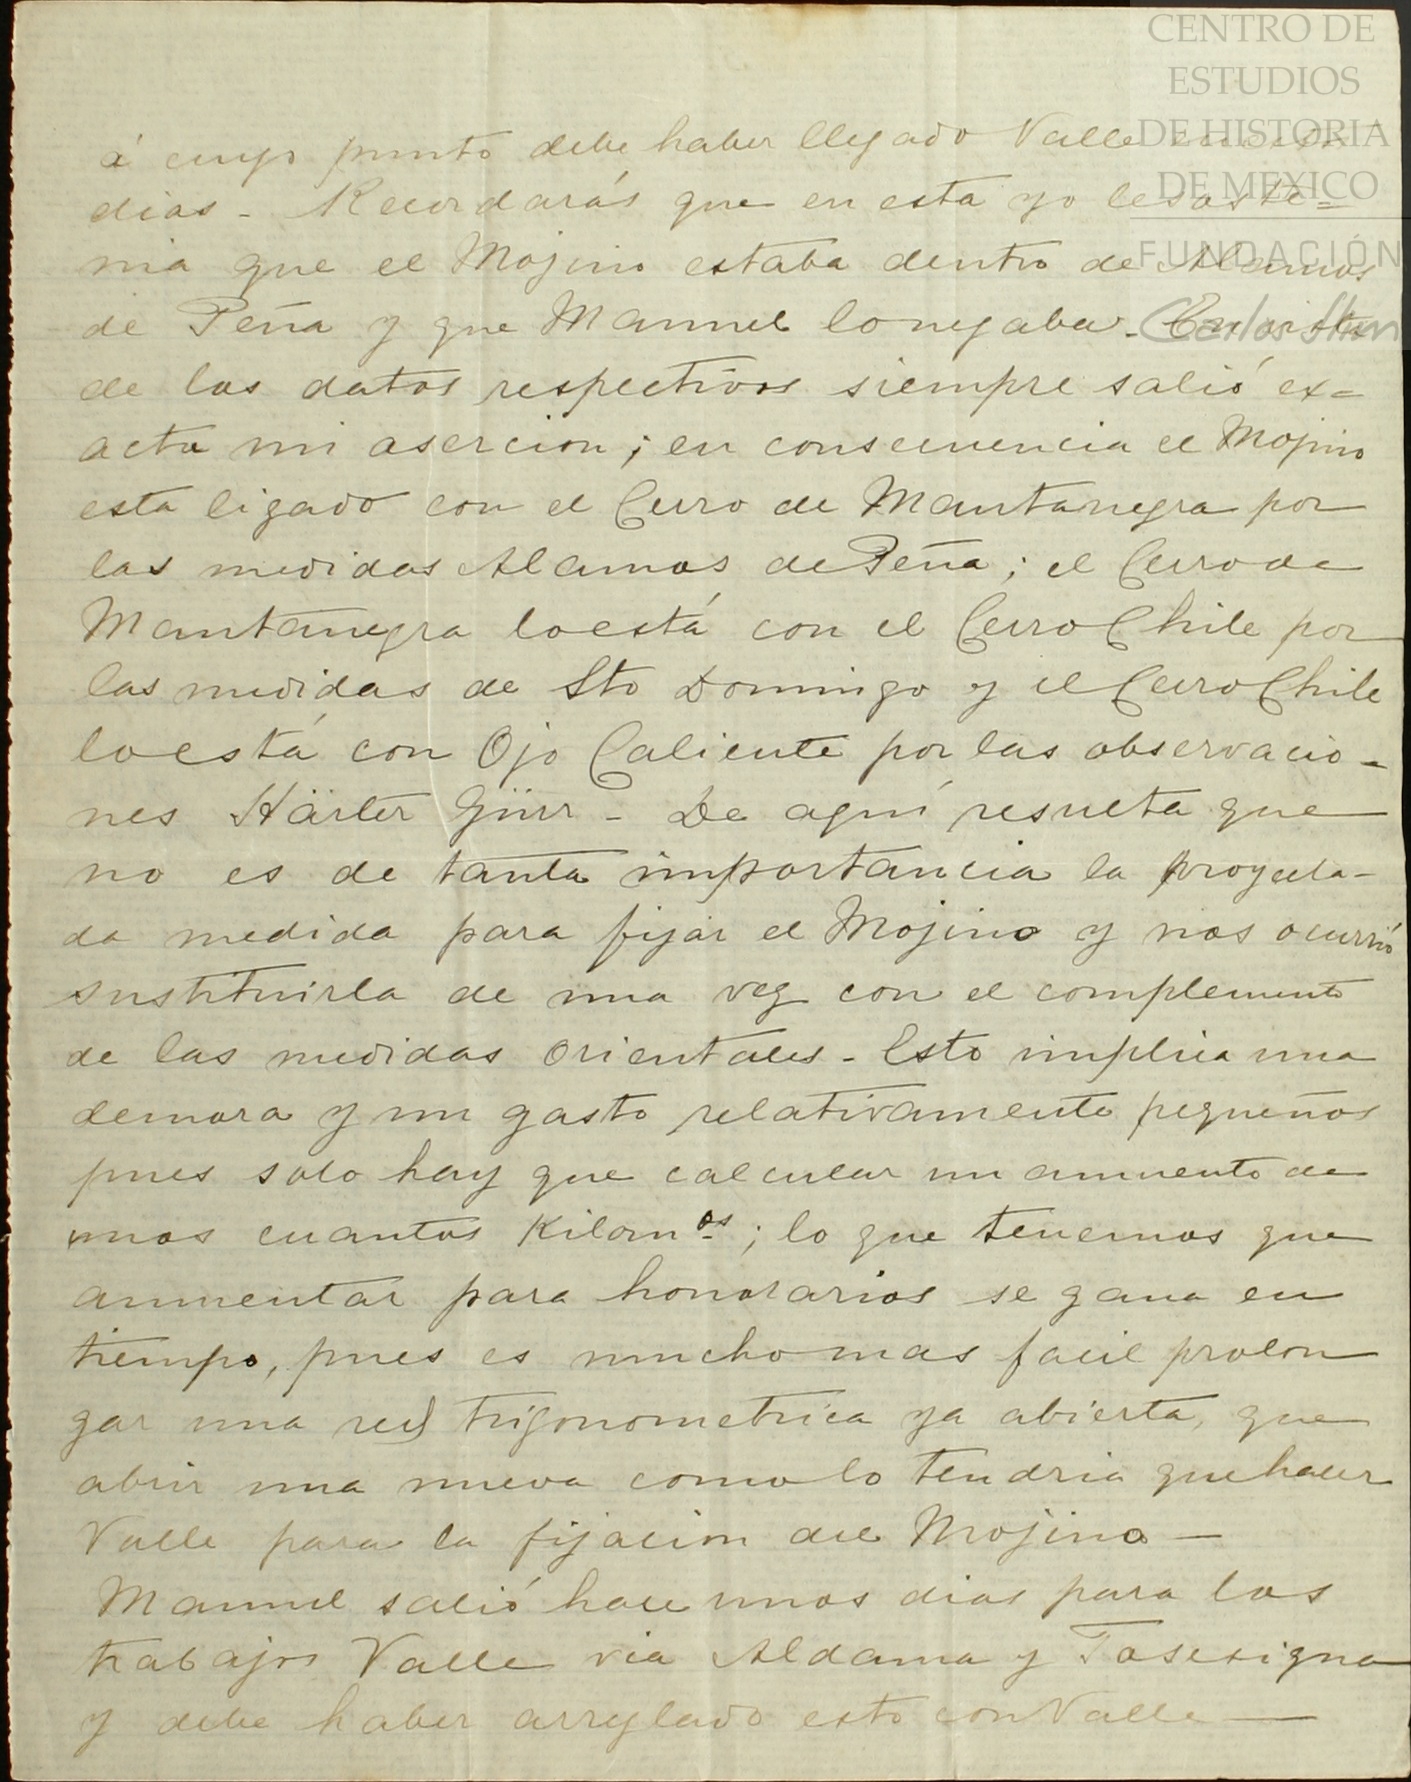 CENTRO DE
ESTUDIOS
DE HISTORIA
DE MEXICO
FUNDACIÓN
Carlos Slim
á cuyo punto debe haber llegado Valle
dias - Recordarás que en esta yo le soste=
nia que el Mojino estaba dentro de Alamos
de Peña y que Manuel lo negaba - En vista
de los datos respectivos siempre salió ex=
acta mi asercion; en consecuencia el Mojino
esta ligado con el Cerro de Mantanegra por
las medidas Alamos de Peña; el Cerro de
Mantanegra lo está con el Cerro Chile por
las medidas de Sto Domingo y el Cerro Chile
lo está con Ojo Caliente por las observacio-
nes Härter Gürr - De aquí resulta que
no es de tanta importancia la proyecta-
da medida para fijar el Mojino y nos ocurrió
sustituirla de una vez con el complemento
de las medidas orientales - Esto implica una
demora y un gasto relativamente pequeños
pues solo hay que calcular un aumento de
unos cuantos Kilom.os; lo que tenemos que
aumentar para honorarios se gana en
tiempo, pues es mucho mas facil prolon
gar una red trigonometrica ya abierta, que
abrir una nueva como lo tendria que hacer
Valle para la fijacion del Mojino —
Manuel salió hace unos dias para los
trabajos Valle via Aldama y
y debe haber arreglado esto con Valle —